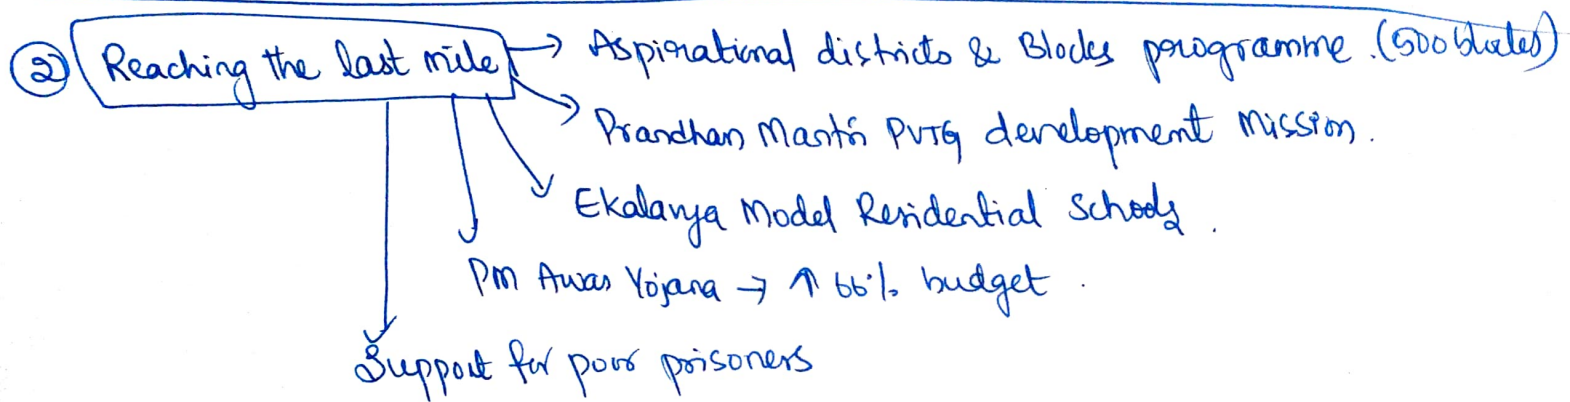 ② Reaching the last mile → Aspirational districts & Blocks programme. (500 blocks)
→ Prandhan Mantri PVTG development Mission.
Ekalavya Model Residential Schools.
PM Awas Yojana → ↑ 66% budget.
Support for poor prisoners